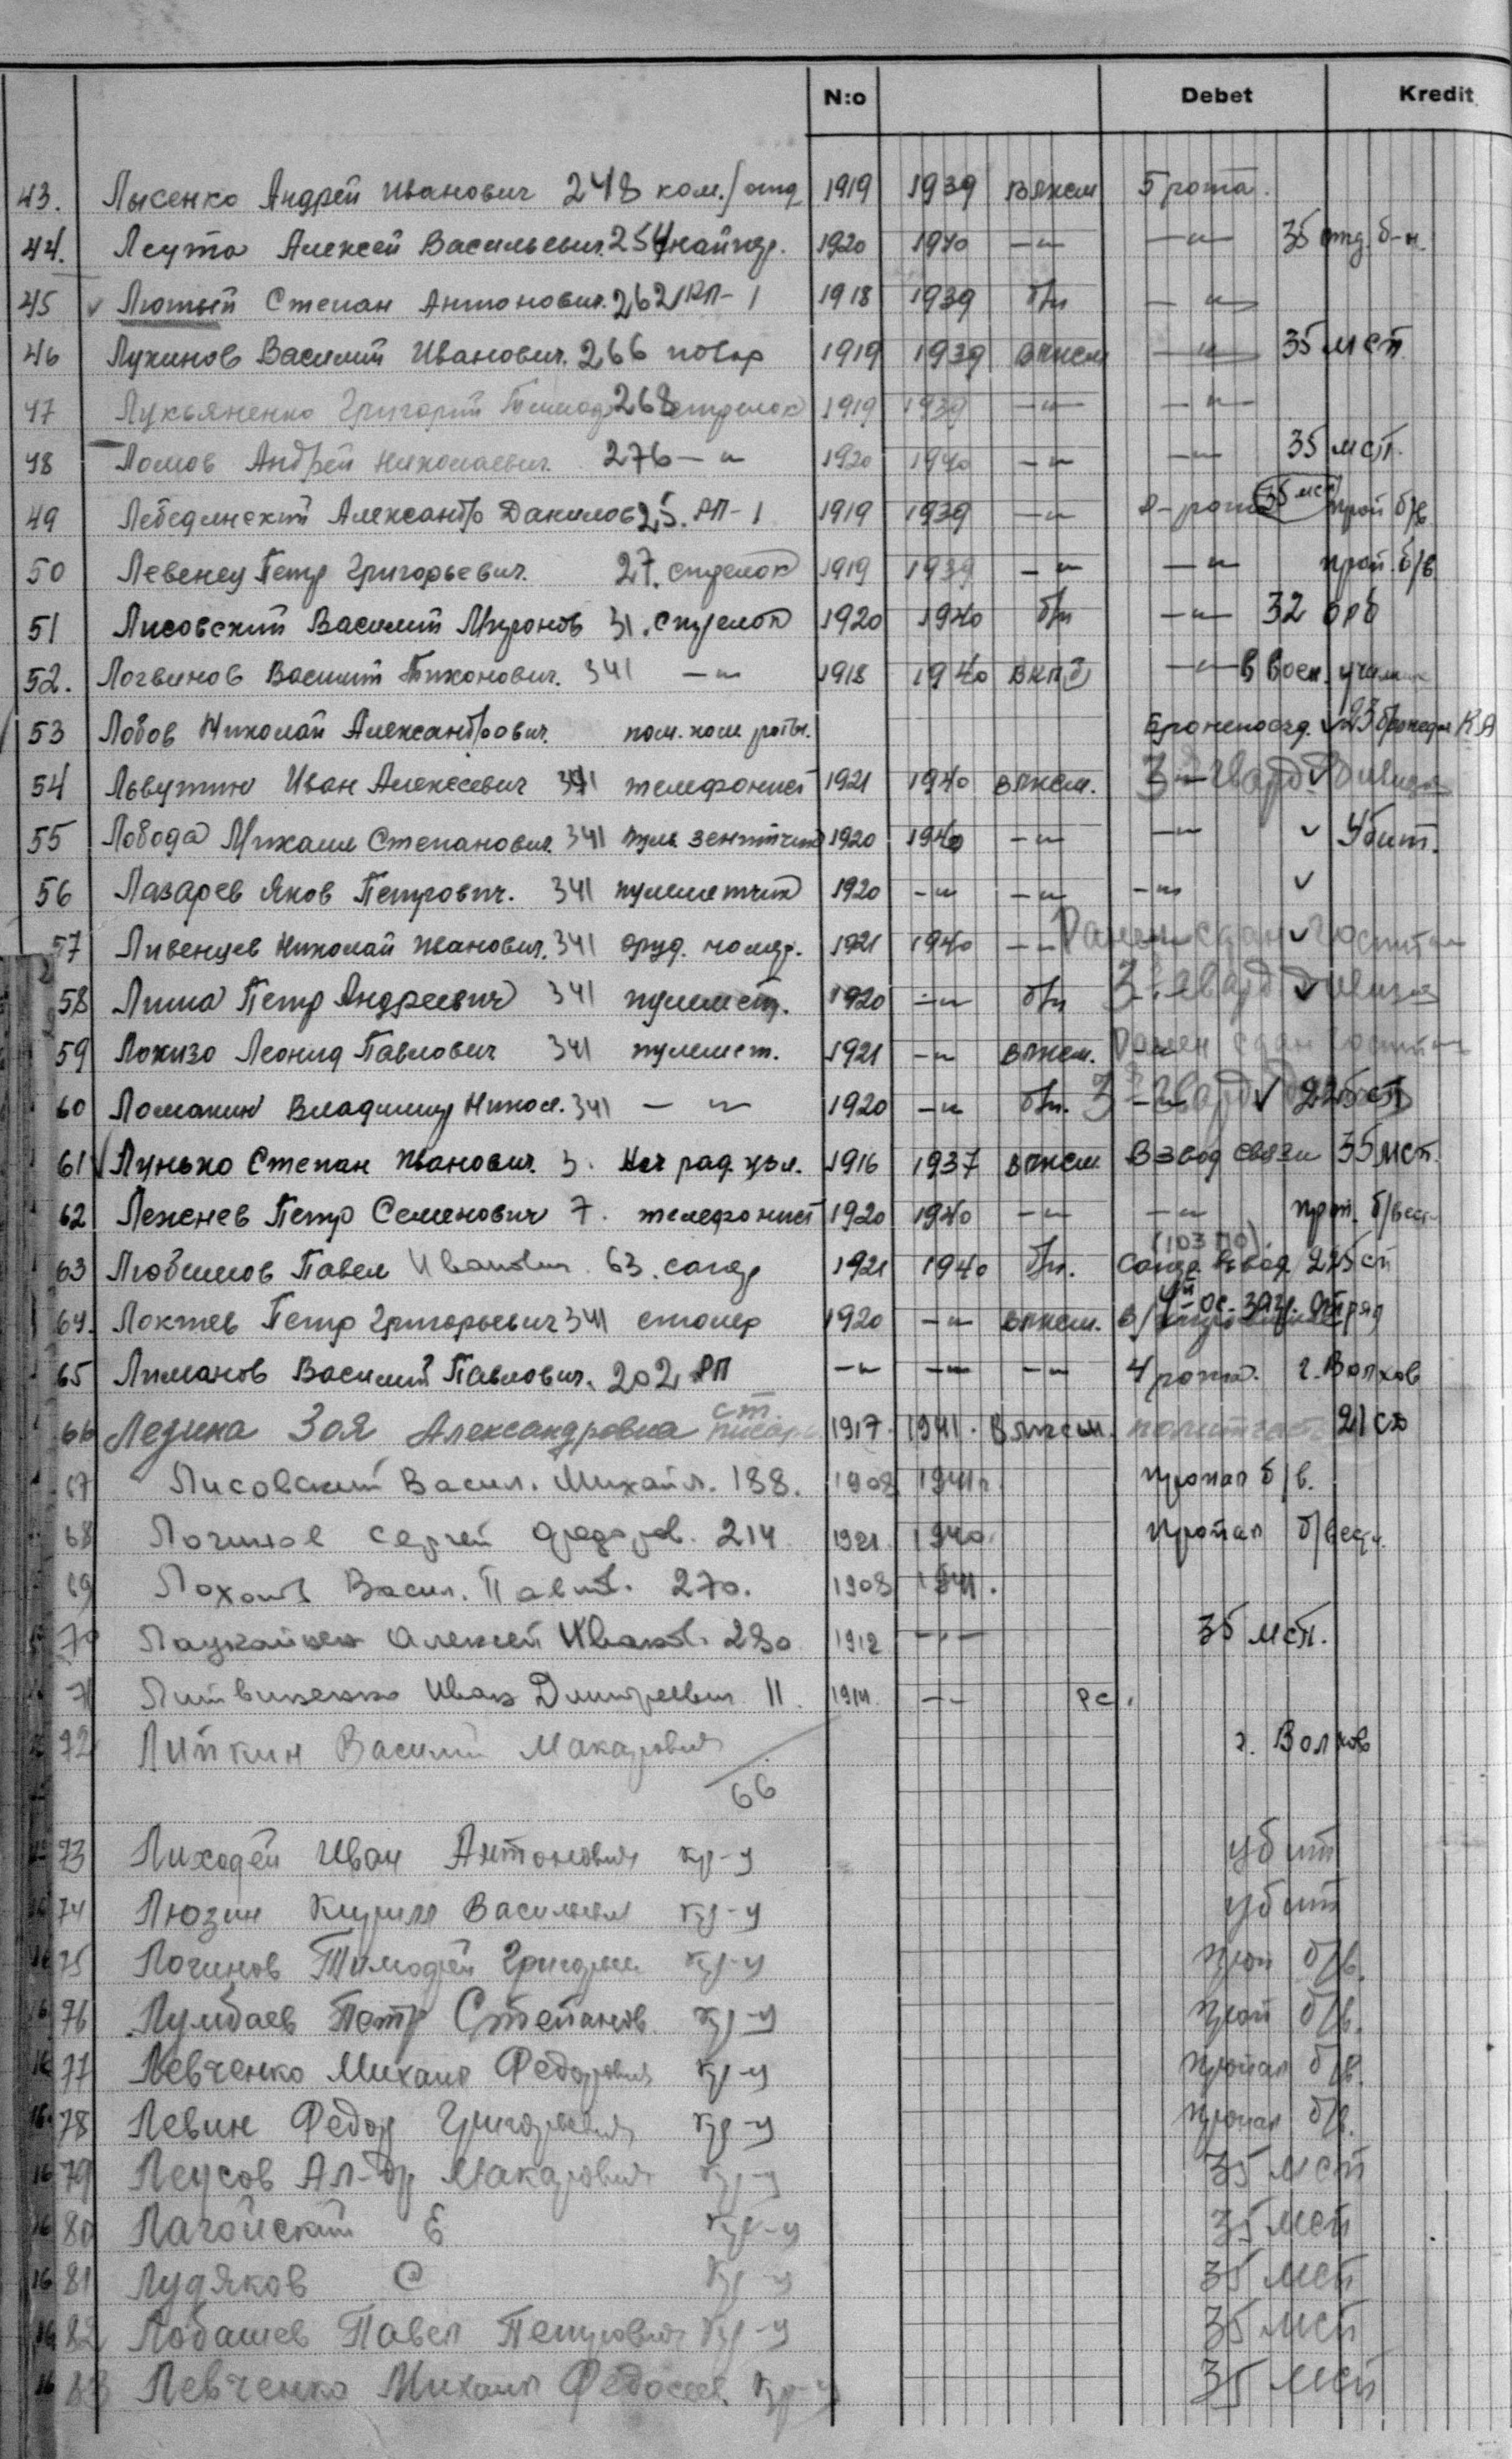 N:o Debet Kredit
43. Лысенко Андрей Иванович 248 ком./отд 1919 1939 влксм 5 рота.
44. Леута Алексей Васильевич. 254 1920 1940 —〃— —〃— 35 отд. б-н.
45 ✓ Лютый Степан Антонович. 262 РП-1 1918 1939 б/п —〃—
46 Лукинов Василий Иванович. 266 повар 1919 1939 влксм —〃— 35 мсп.
47 Лукьяненко Григорий 268 стрелок 1919 1939 —〃— —〃—
48 Ломов Андрей Николаевич. 276 —〃 1920 1940 —〃— —〃— 35 мсп.
49 Лебединский Александр Данилов 25. РП-1 1919 1939 —〃— 35 мсп проп б/в
50 Левенец Петр Григорьевич. 27. стрелок 1919 1939 —〃 —〃— проп. б/в
51 Лисовский Василий Миронов 31. стрелок 1920 1940 б/п —〃— 32 орб
52. Логвинов Василий Тихонович. 341 —〃 1918 1940 ВКП(б) —〃— в воен.
53 Лобов Николай Александрович. пом. ком роты. Бронепоезд. ✓ 23 К А
54 Львутин Иван Алексеевич 341 телефонист 1921 1940 влксм. —〃— 3 Гвард ✓ Дивизия
55 Лобода Михаил Степанович. 341 пул. зенитчик 1920 1940 —〃 —〃 ✓ Убит.
56 Лазарев Яков Петрович. 341 пулеметчик 1920 —〃 —〃 —〃 ✓
57 Ливенцев Николай Иванович. 341 оруд. номер. 1921 1940 —〃 Ранен сдан ✓ Госпиталь
58 Липа Петр Андреевич 341 пулемет. 1920 —〃 б/п 3 гвард ✓ Дивизия
59 Локизо Леонид Павлович 341 пулемет. 1921 —〃 влксм. —〃 Ранен сдан госпиталь
60 Ломакин Владимир Никол. 341 —〃 1920 —〃 б/п. 3 гвард ✓ 225 сп
61 ✓ Лунько Степан Иванович. 3. Нач рад. узл. 1916 1937 влксм Взвод связи 35 мсп.
62 Леженев Петр Семенович 7. телефонист 1920 1940 —〃 —〃 проп. б/вест
63 Любимов Павел Иванович. 63. сапер 1921 1940 б/п. (103 ПО). Сапер. Взвод 225 сп
64. Локтев Петр Григорьевич 341 столяр 1920 —〃 влксм. ос. загр. отряд
65 Лиманов Василий Павлович. 202 РП —〃 —〃 —〃 4 рота. г. Волхов
66 Ледина Зоя Александровна ст. писарь 1917. 1941. Влксм. политчасть 21 сд
67 Лисовский Васил. Михайл. 188. 1908 1941г. пропал б/в.
68 Логинов Сергей Федоров. 214. 1921. 1940. Пропал б/вест.
69 Васил. Павл. 270. 1908 1941.
70 Лаукайнен Алексей Иванов. 280 1912 —〃— 35 мсп.
71 Литвиненко Иван Дмитриевич 11. 1914. —〃 РС.
72 Липкин Василий Макарович г. Волхов
66
73 Лиходей Иван Антонович кр-ц убит
74 Люзин Кирилл Васильев кр-ц убит
75 Логинов Тимофей Григорьев кр-ц проп б/в.
76 Лумбаев Петр Степанов. кр-ц проп б/в.
77 Левченко Михаил Федорович кр-ц пропал б/в.
78 Левин Федор Григорьевич кр-ц пропал б/в.
79 Леусов Ал-др Макарович кр-ц 35 мсп
80 Лагойский Е кр-ц 35 мсп
81 Лудяков С кр-ц 35 мсп
82 Лобашев Павел Петрович кр-ц 35 мсп
83 Левченко Михаил Федосеев. кр-ц 35 мсп